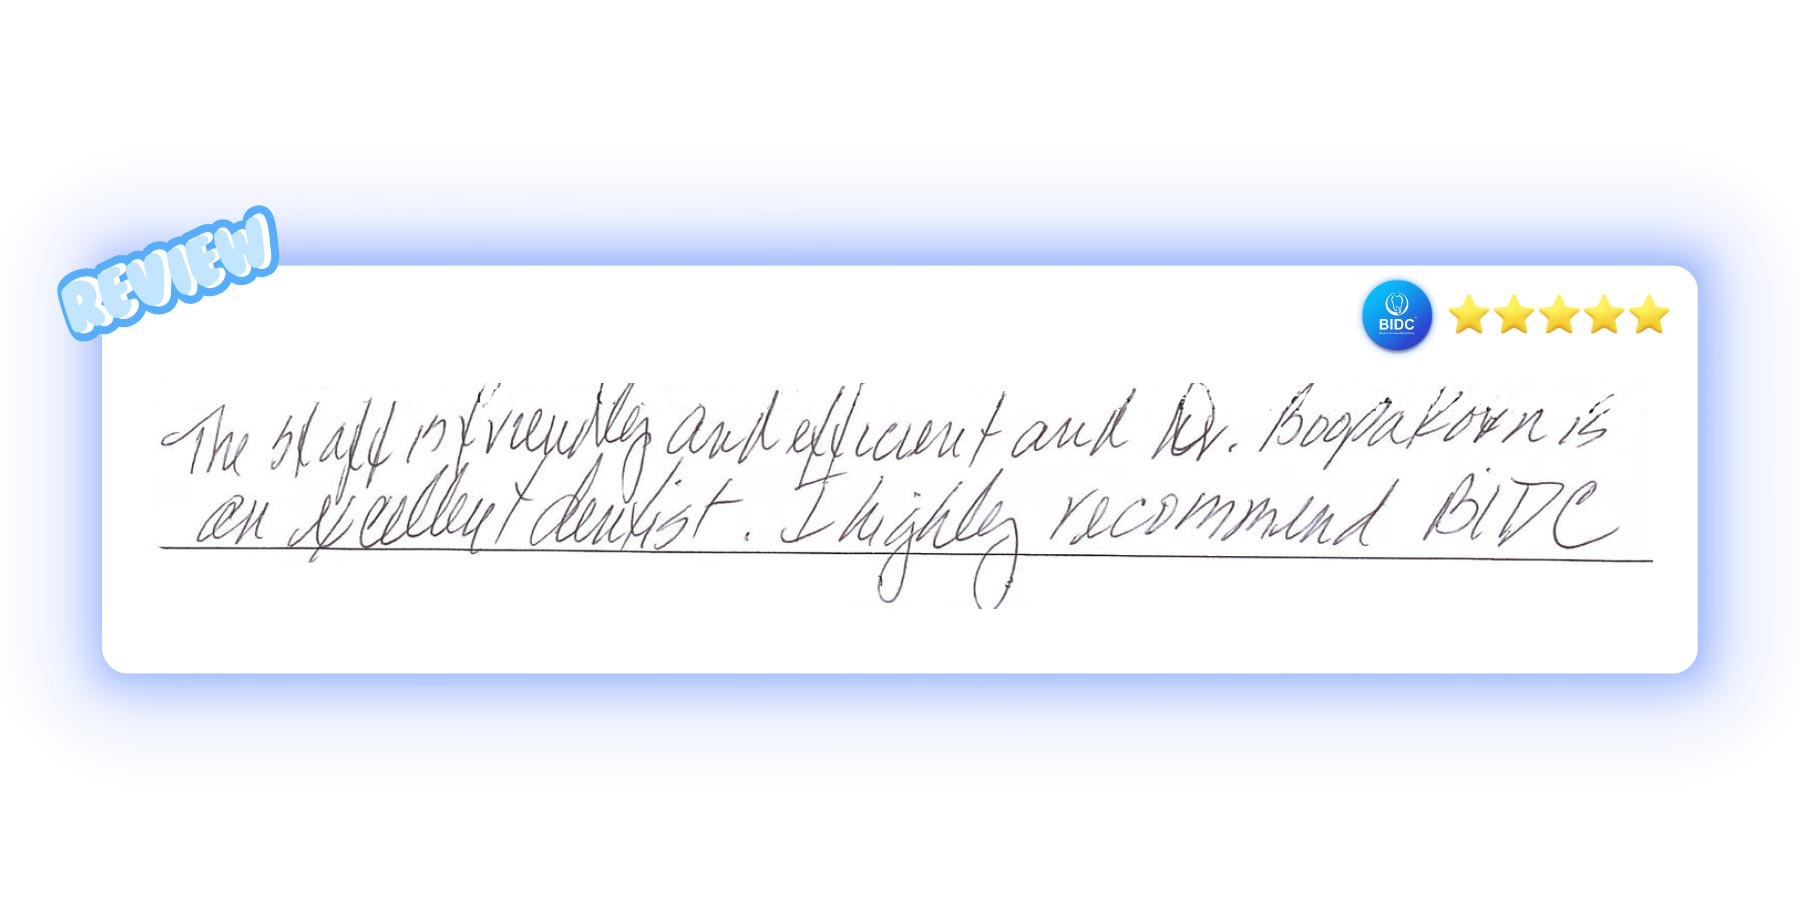 REVIEW
BIDC
The staff is friendly and efficient and Dr. Boopakorn is
an excellent dentist. I highly recommend BIDC